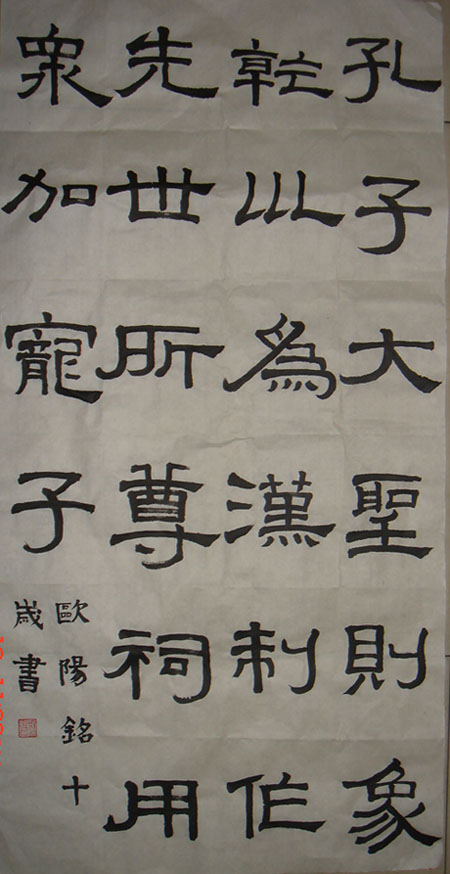 孔子大聖則象
乾巛為漢制作
先世所尊祠用
衆加寵子
歐陽銘十
歲書